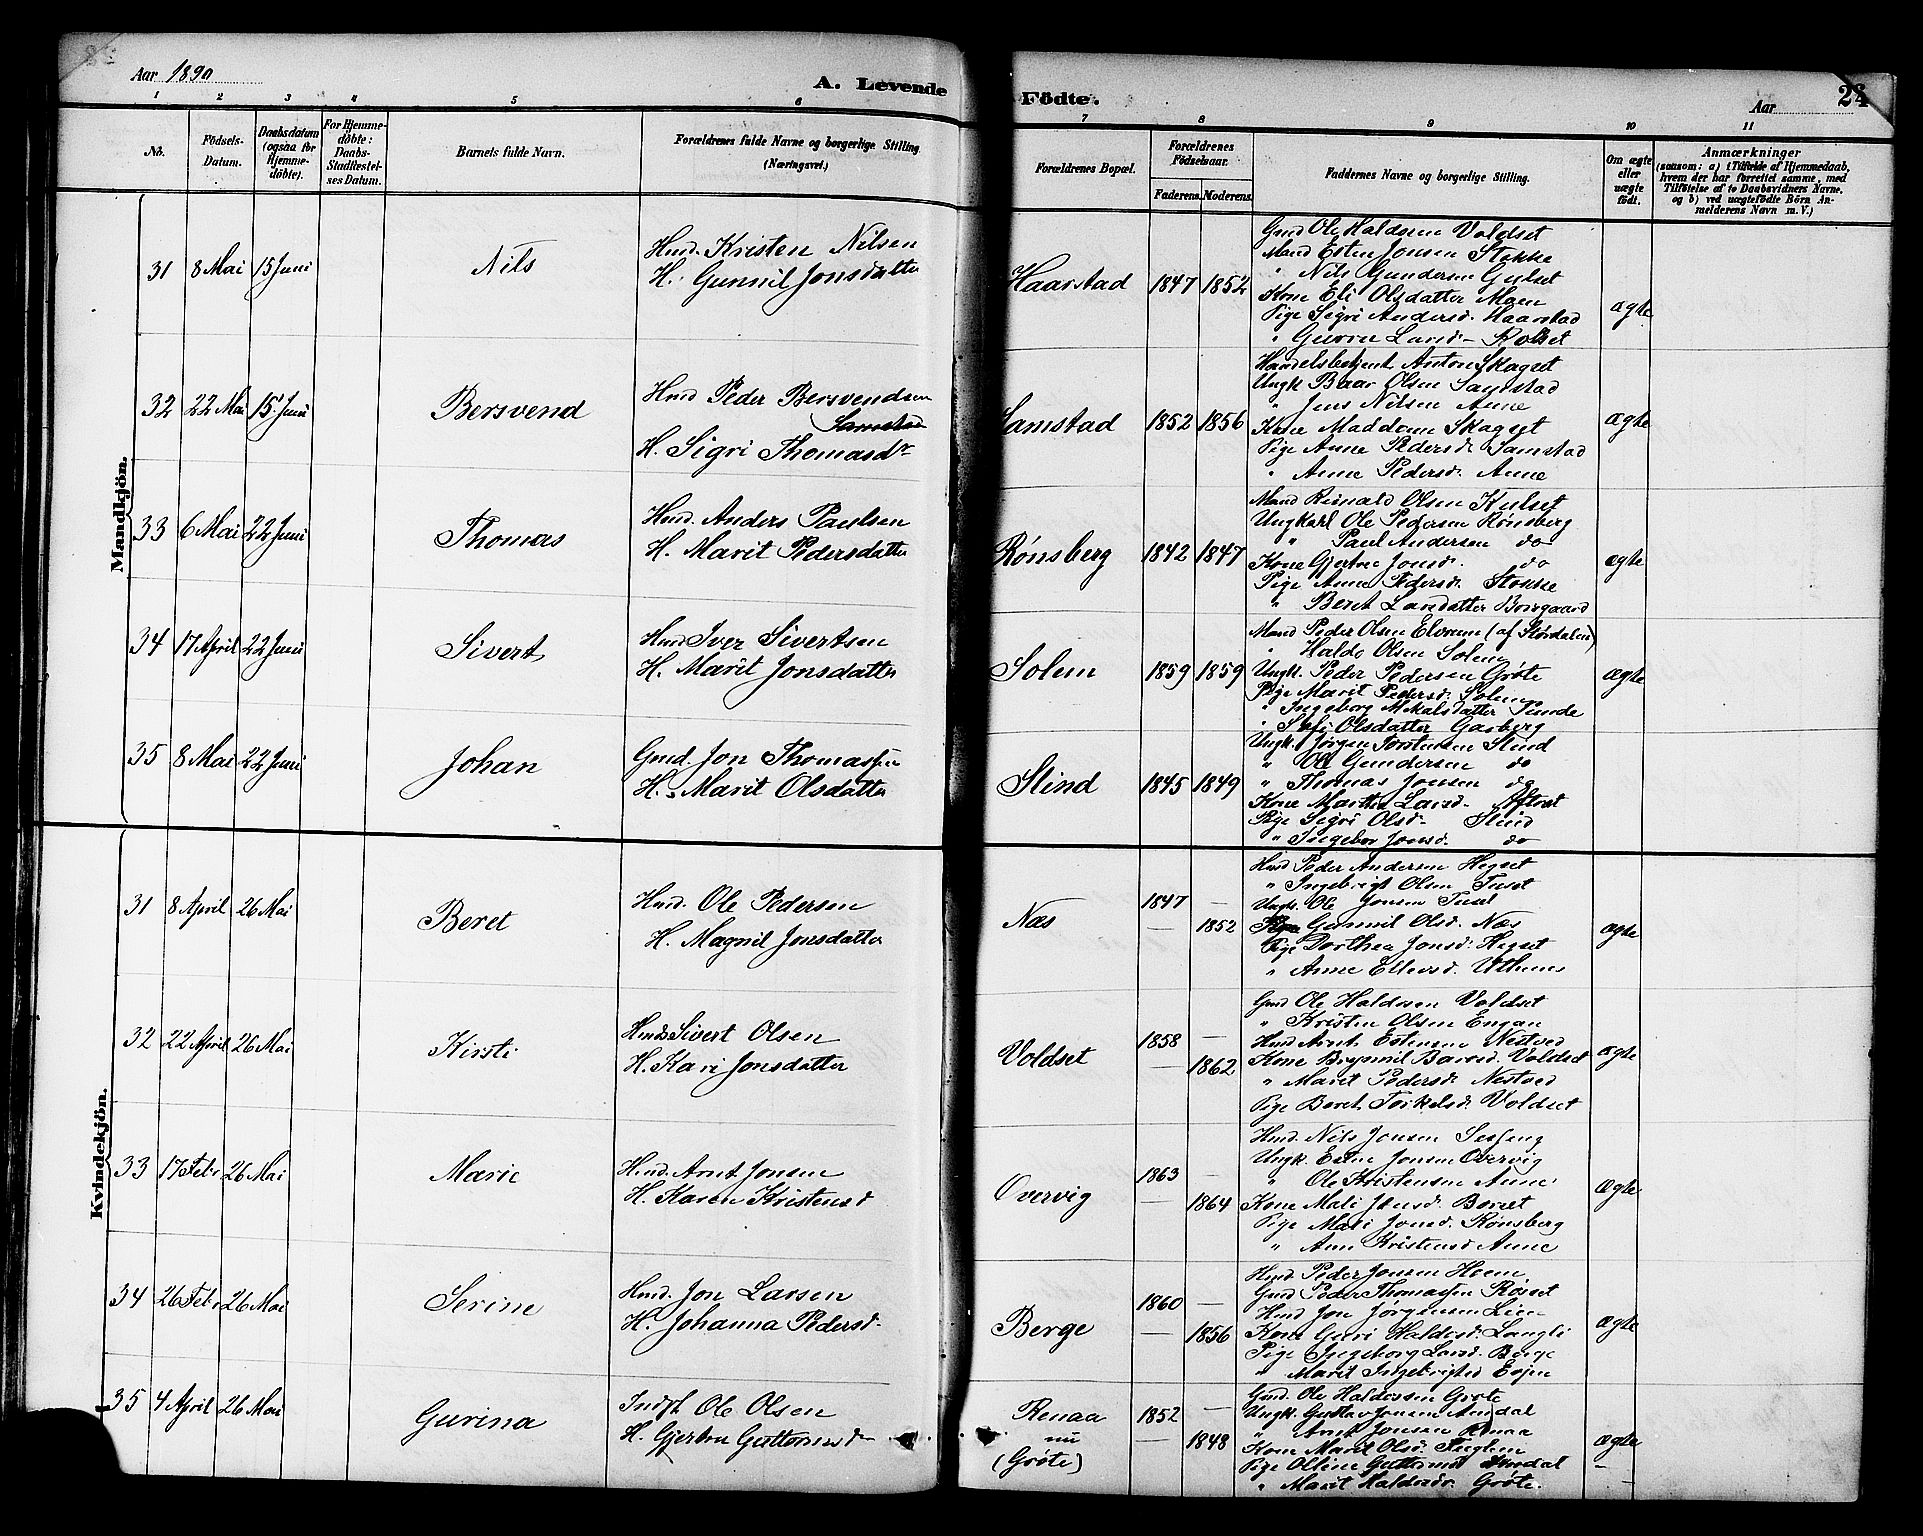 Aar 1890
A. Levende
Födte.
Aar
24
1 2 3 4 5 6
7 8 9 10 11
No.
Födsels-
Datum.
Daabsdatum
(ogsaa for
Hjemme-
döbte).
For Hjemme-
döbte:
Daabs-
Stadfæstel-
ses Datum.
Barnets fulde Navn.
Forældrenes fulde Navne og borgerlige Stilling
(Næringsvei.)
Forældrenes Bopæl.
Forældrenes
Födselsaar.
Faderens. Moderens.
Faddernes Navne og borgerlige Stilling.
Om ægte
eller
uægte
födt.
Anmærkninger
(saasom: a) i Tilfælde af Hjemmedaab,
hvem der har forrettet samme, med
Tilföielse af to Daabsvidners Navne,
og b) ved uægtefödte Börn An-
melderens Navn m. V.)
Mandkjön.
31 8 Mai 15 Juni Nils
Hmd. Kristen Nilsen
H. Gunnil Jonsdatter
Haarstad 1847 1852
Gmd Ole Haldosen Voldset
Mand Esten Jonsen Stokke
" Nils Gundersen Gulset
Kone Eli Olsdatter Moen
Pige Sigri Andersd. Haarstad
" Guru Larsd- Rolset
ægte
32 22 Mai 15 Juni Bersvend
Hmd Peder Bersvendsen
Samstad
H. Sigri Thomasdr
Samstad 1852 1856
Handelsbetjent Anton Skagset
Ungk Baar Olsen Samstad
" Jens Nilsen Aune
Kone Maddem Skagset
Pige Anne Pedersd. Samstad
" Anne Pedersd. Aune
ægte
33 6 Mai 22 Juni Thomas
Hmd. Anders Paulsen
H. Marit Pedersdatter
Rønsberg 1842 1847
Mand Reinald Olsen Kulset
Ungkarl Ole Pedersen Rønsberg
" Paul Andersen do
Kone Gjertru Jonsd. do
Pige Anne Pedersd. Stokke
" Beret Larsdatter Borsgaard
ægte
34 17 April 22 Juni Sivert
Hmd Iver Sivertsen
H. Marit Jonsdatter
Solem 1859 1859
Mand Peder Olsen Elvrum (af Størdalen)
" Haldo Olsen Solem
Ungk. Peder Pedersen Grøte
Pige Marit Pedersd. Solem
" Ingeborg Mikalsdatter
" Olsdatter Garberg
ægte
35 8 Mai 22 Juni Johan
Gmd. Jon Thomassen
H. Marit Olsdatter
Slind 1845 1849
Ungk. Jørgen Torstensen Slind
" Ole Gundersen do
" Thomas Jonsen do
Kone Martha Larsd.
Pige Sigri Olsd- Slind
" Ingebor Jonsd. do
Kvindekjön.
31 8 April 26 Mai Beret
Hmd. Ole Pedersen
H. Magnil Jonsdatter
Næs 1847 —
— 1852
Hmd Peder Andersen Hegset
" Ingebrigt Olsen Tuset
Ungk. Ole Jonsen Tuset
Gunnil Olsd. Næs
Pige Dorthea Jonsd. Hegset
" Anne Ellevsd. Uthuus
ægte
32 22 April 26 Mai Kirsti
Hmd Sivert Olsen
H. Kari Jonsdatter
Voldset 1858 —
— 1862
Gmd Ole Haldosen Voldset
" Kristen Olsen Engan
Hmd Arnt Estensen Nestved
Kone Brynnil Baarsd. Voldset
" Marit Pedersd. Nestvod
Pige Beret Torkelsd. Voldset
ægte
33 17 Febr 26 Mai Marie
Hmd. Arnt Jonsen
H. Karen Kristensd
Overvig 1863 —
— 1864
Hmd. Nils Jonsen Sesseng
Ungk. Esten Jonsen Overvig
" Ole Kristensen Aune
Kone Mali Jonsd.
Pige Mali Jonsd. Rønsberg
" Ann Kristensd Aune
ægte
34 26 Febr 26 Mai Serine
Hmd. Jon Larsen
H. Johanna Pedersd.
Berge 1860 —
— 1856
Hmd Peder Jonsen Hoem
Gmd Peder Thomassen Rolset
Hmd Jon Jørgensen Lien
Kone Guri Haldosd. Langli
Pige Ingeborg Larsd. Berge
" Marit Ingebrigtsd Evjen
ægte
35 4 April 26 Mai Gurina
Inds. Ole Olsen
H. Gjertru Guttormsd
Renaa
nu
(Grøte)
1852 —
— 1848
Gmd. Ole Haldosen Grøte
Ungk. Gustav Jonsen Amdal
" Arnt Jonsen Renaa
Kone Marit Olsd. Fuglem
Pige Olline Guttormsd Amdal
" Marit Haldosdr Grøte.
ægte